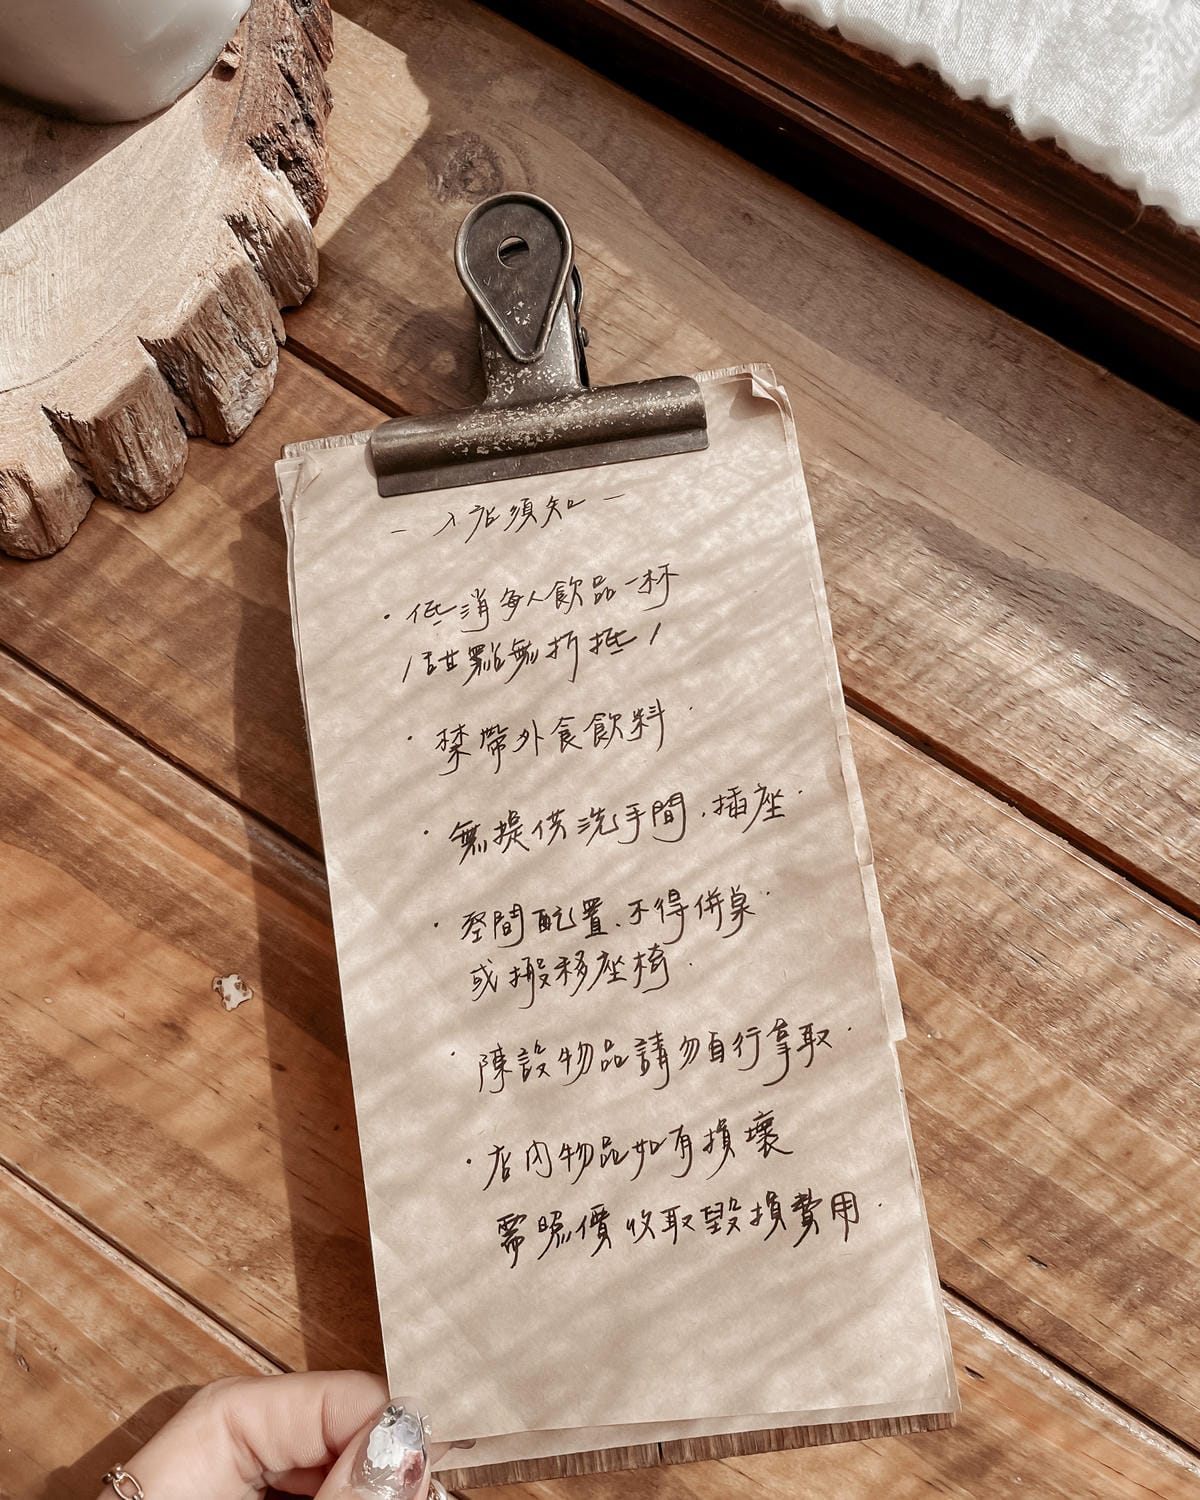 - 入店須知 -
· 低消每人飲品一杯
/ 甜點無折抵 /
· 禁帶外食飲料.
· 無提供洗手間.插座.
· 空間配置.不得併桌.
或搬移座椅.
· 陳設物品請勿自行拿取.
· 店內物品如有損壞
需照價收取毀損費用.